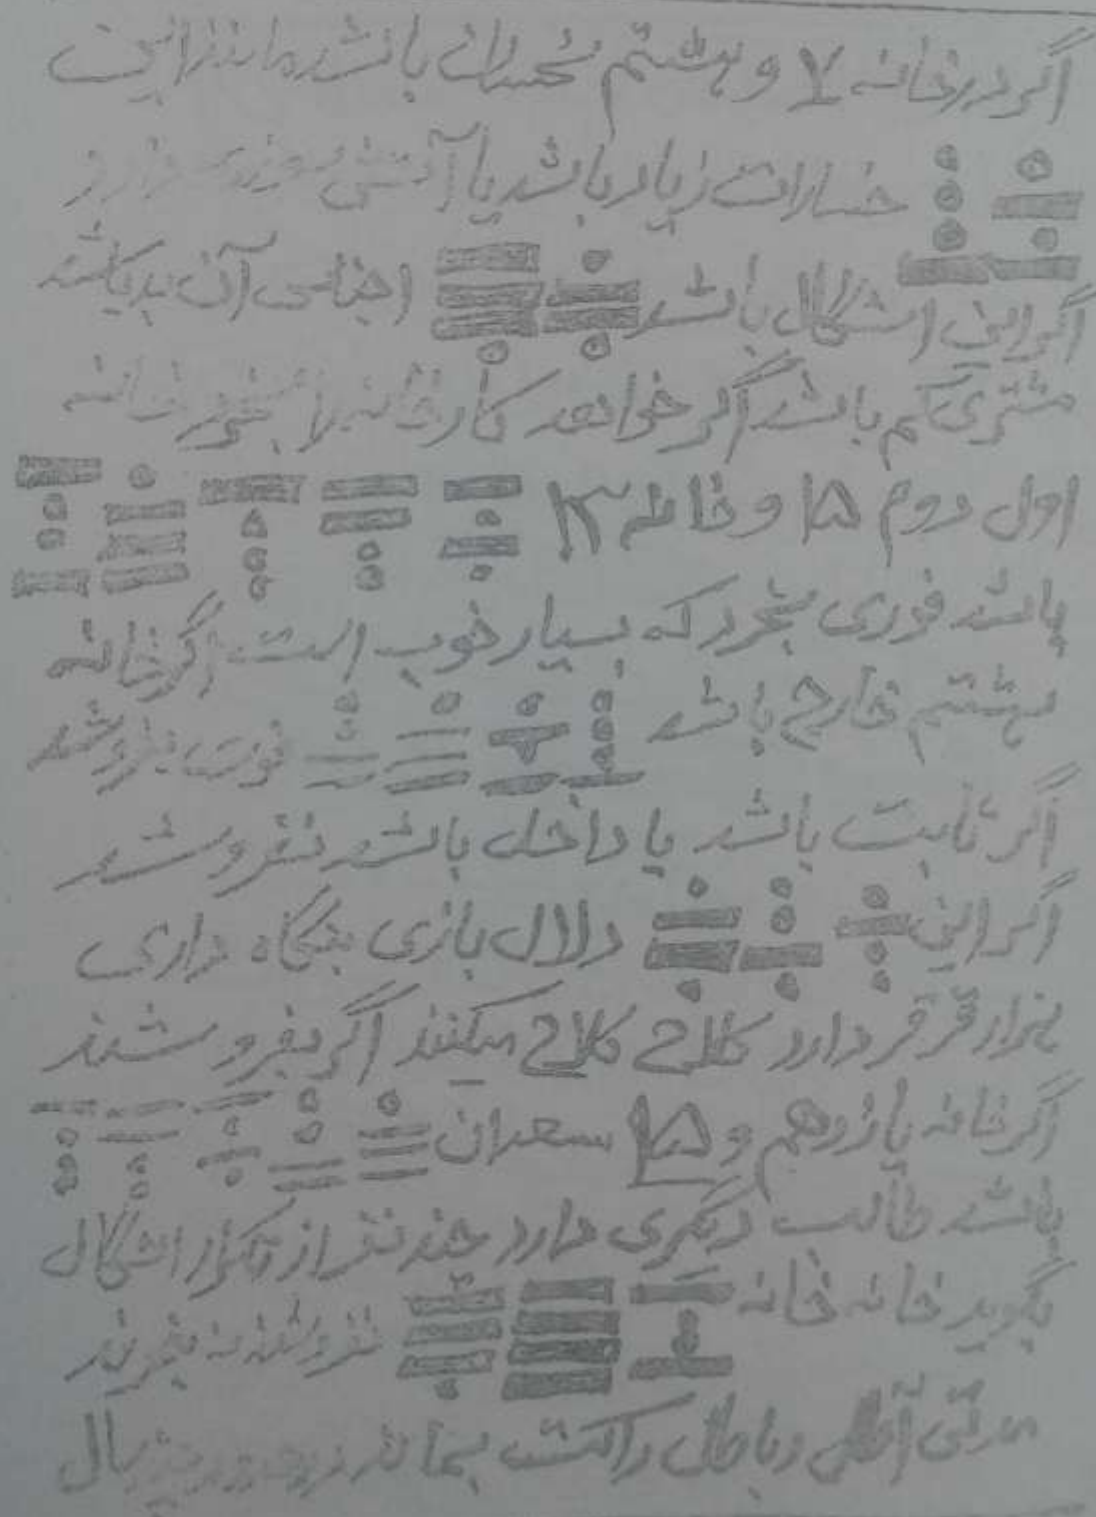 اگر در خانه ۷ و هشتم نحسان باشد مانند این
خسارات زیاد باشد یا آتش
اگر این اشکال باشد اجناس آن بد باشد
مشتری کم باشد اگر خواهد کارخانه را بخرد خانه
اول دوم ۱۵ و خانه ۱۳
باشد فوری بخرد که بسیار خوب است اگر خانه
هشتم خارج باشد بفروشد
اگر ثابت باشد یا داخل باشد نفروشد
اگر این دلال بازی بنگاه داری
هزار قر قر دارد کلاج کلاج میکنند اگر بفروشند
اگر خانه یازدهم و ۱۵ سعدان
باشد طالب دیگری دارد چند نفر از تکرار اشکال
بگوید خانه خانه نفروشند نه بخرند
مدتی و باطل راکت بماند